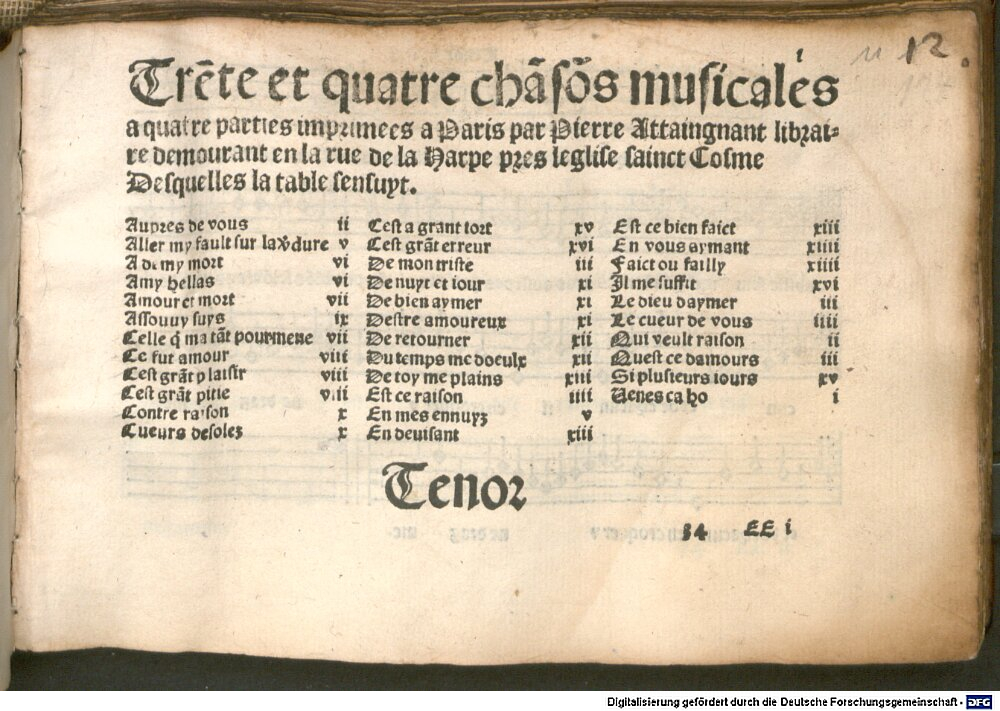 12.
Trēte et quatre chāsōs musicales
a quatre parties imprimees a Paris par Pierre Attaingnant librai-
re demourant en la rue de la Harpe pres leglise sainct Cosme
Desquelles la table sensuyt.
Aupres de vous ii
Aller my fault sur la v̄dure v
A di my mort vi
Amy hellas vi
Amour et mort vii
Assouvy suys ix
Celle q̄ ma tāt pourmene vii
Ce fut amour viii
Cest grāt plaisir viii
Cest grāt pitie viii
Contre raison x
Cueurs desolez x
Cest a grant tort xv
Cest grāt erreur xvi
De mon triste iii
De nuyt et iour xi
De bien aymer xi
Destre amoureux xi
De retourner xii
Du temps me doeulx xii
De toy me plains xiii
Est ce raison iiii
En mes ennuyz v
En devisant xiii
Est ce bien faict xiii
En vous aymant xiiii
Faict ou failly xiiii
Il me suffit xvi
Le dieu daymer iii
Le cueur de vous iiii
Qui veult raison ii
Quest ce damours iii
Si plusieurs iours xv
Venes ca ho i
Tenor
34 EE i
Digitalisierung gefördert durch die Deutsche Forschungsgemeinschaft - DFG